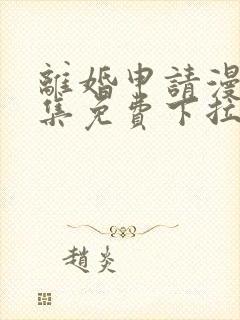 離婚申請漫
集免費下拉
趙炎